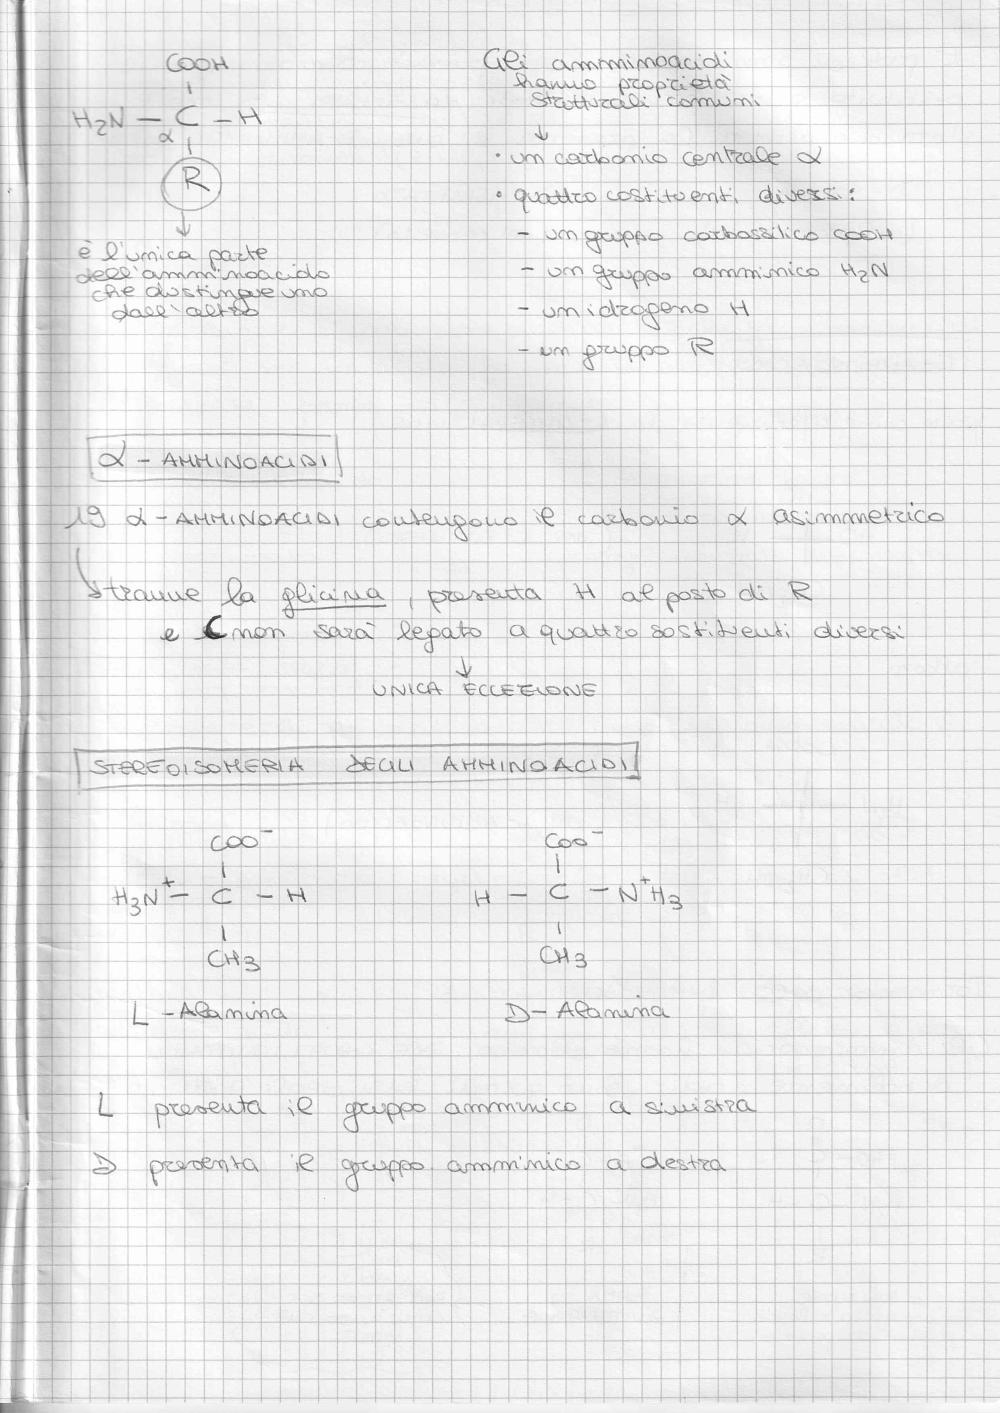 COOH
H₂N — C — H
α
R
è l'unica parte
dell'amminoacido
che distingue uno
dall'altro
Gli amminoacidi
hanno proprietà
strutturali comuni
↓
• un carbonio centrale α
• quattro costituenti diversi:
- un gruppo carbossilico COOH
- un gruppo amminico H₂N
- un idrogeno H
- un gruppo R
α - AMMINOACIDI
19 α - AMMINOACIDI contengono il carbonio α asimmetrico
tranne la glicina, presenta H al posto di R
e C non sarà legato a quattro sostituenti diversi
↓
UNICA ECCEZIONE
STEREOISOMERIA DEGLI AMMINOACIDI
COO⁻
H₃N⁺ — C — H
CH₃
L - Alanina
COO⁻
H — C — N⁺H₃
CH₃
D - Alanina
L presenta il gruppo amminico a sinistra
D presenta il gruppo amminico a destra